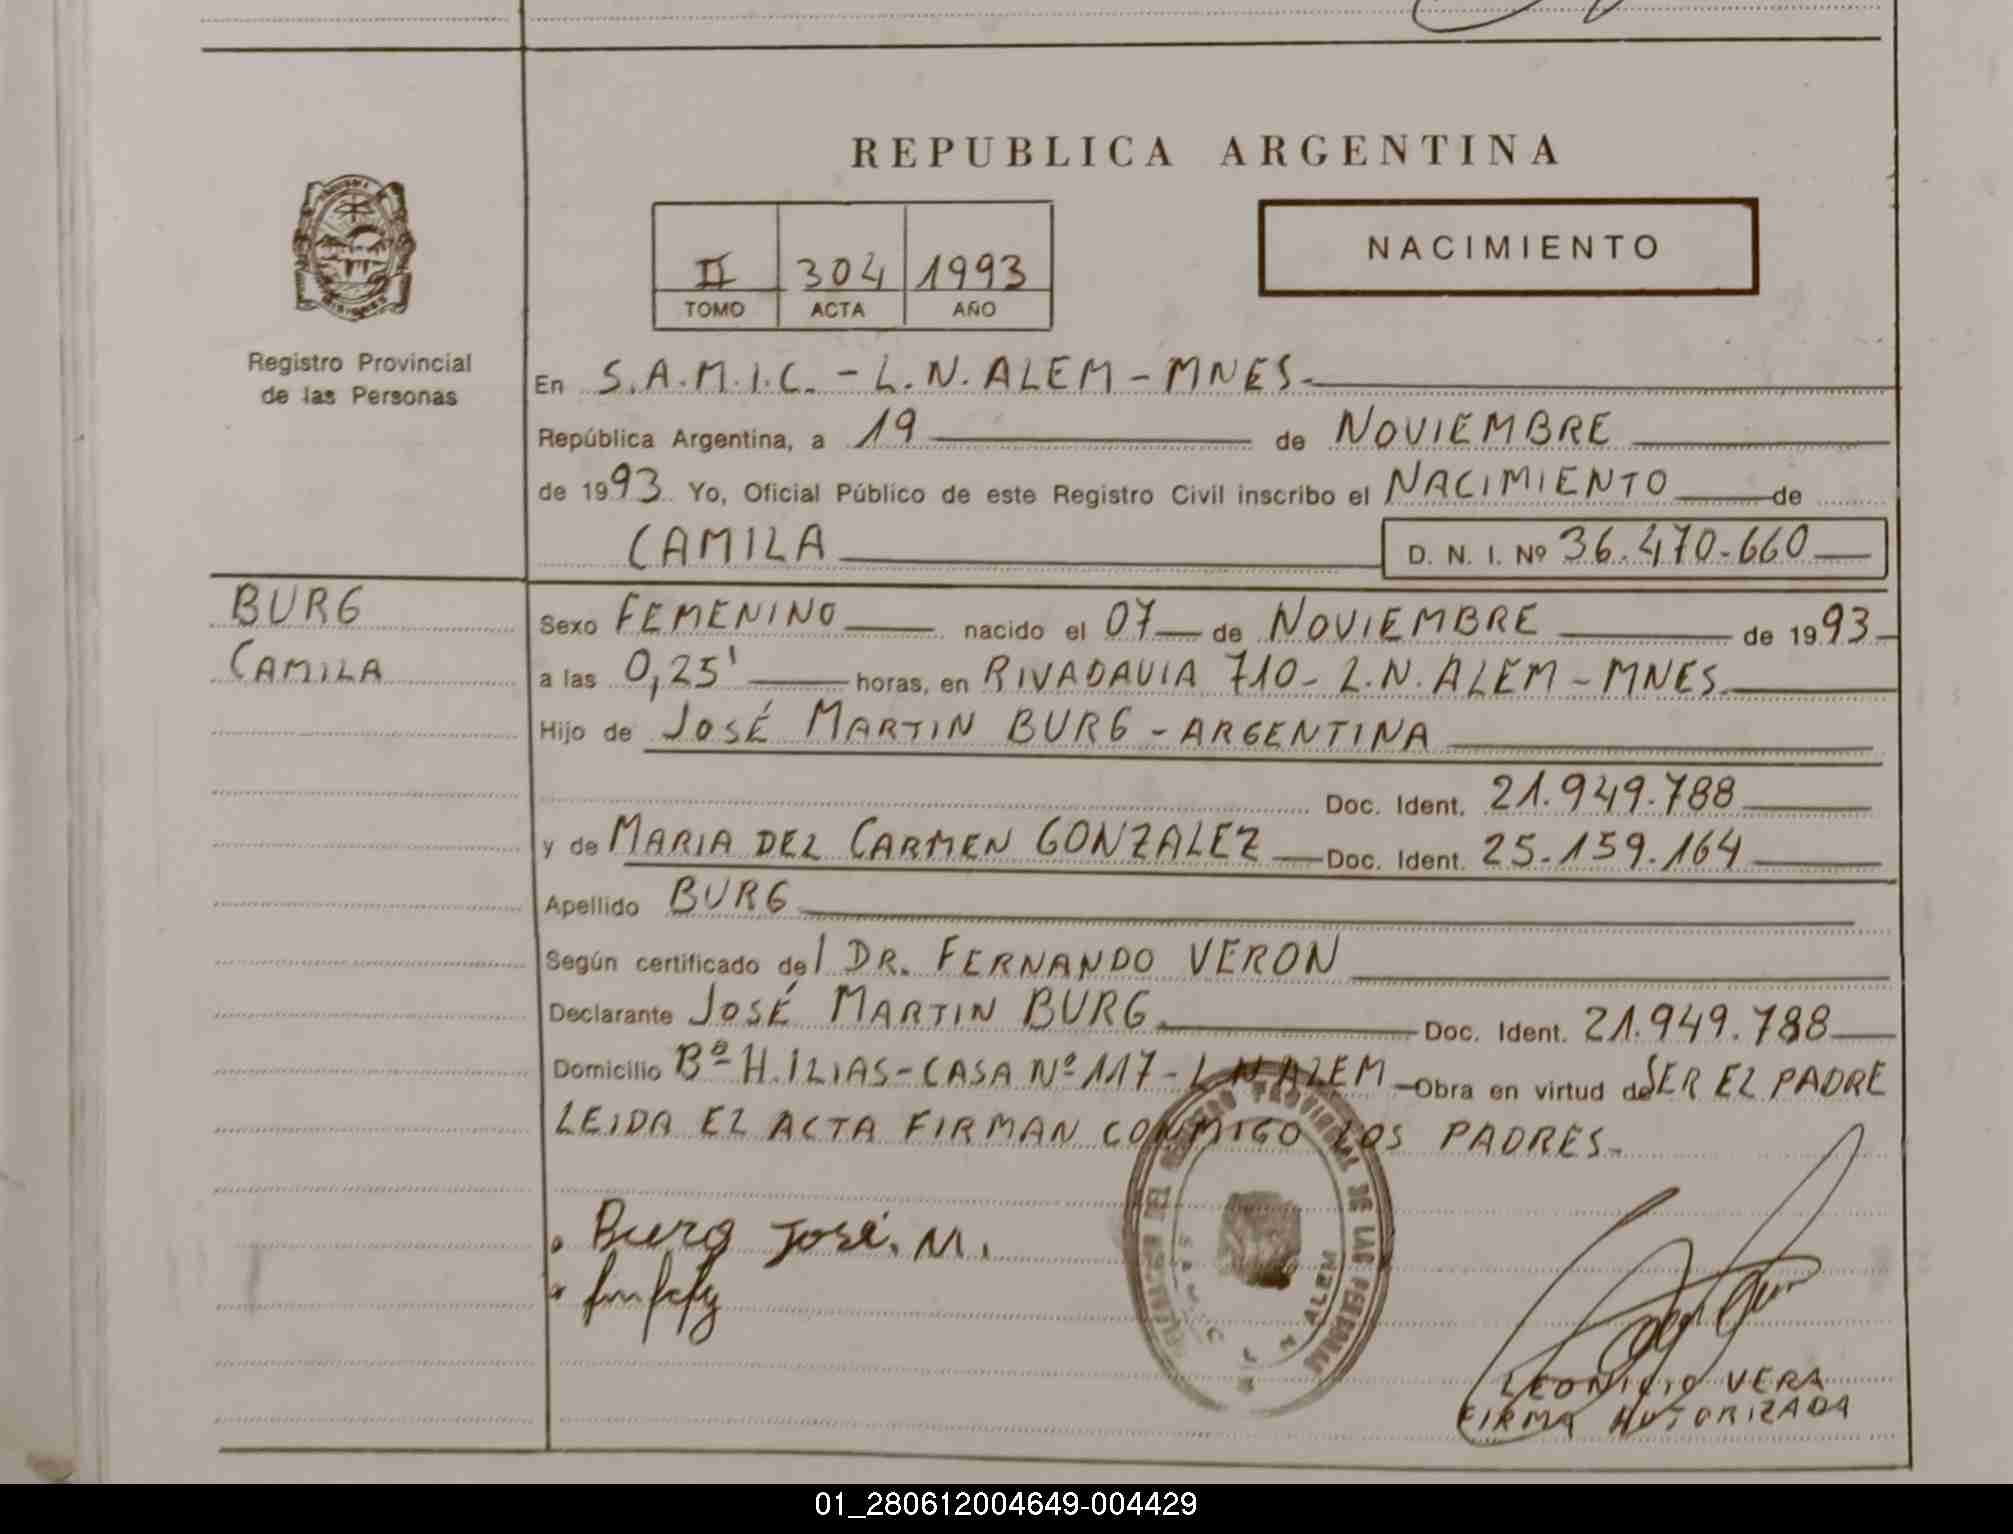 REPUBLICA ARGENTINA
II 304 1993
TOMO ACTA AÑO
NACIMIENTO
Registro Provincial
de las Personas
En S.A.M.I.C. - L.N. ALEM - MNES.
República Argentina, a 19 de NOVIEMBRE
de 1993 Yo, Oficial Público de este Registro Civil inscribo el NACIMIENTO de
CAMILA D. N. I. Nº 36.470.660
BURG
CAMILA
Sexo FEMENINO nacido el 07 de NOVIEMBRE de 1993
a las 0,25' horas, en RIVADAVIA 710 - L.N. ALEM - MNES.
Hijo de JOSÉ MARTIN BURG - ARGENTINA
Doc. Ident. 21.949.788
y de MARIA DEL CARMEN GONZALEZ Doc. Ident. 25.159.164
Apellido BURG
Según certificado del DR. FERNANDO VERON
Declarante JOSÉ MARTIN BURG Doc. Ident. 21.949.788
Domicilio Bº H. ILIAS - CASA Nº 117 - L N ALEM Obra en virtud de SER EL PADRE
LEIDA EL ACTA FIRMAN CONMIGO LOS PADRES.
REGISTRO PROVINCIAL DE LAS PERSONAS
S.A.M.I.C.
L. N. ALEM
Burg José. M.
LEONICIO VERA
FIRMA AUTORIZADA
01_280612004649-004429